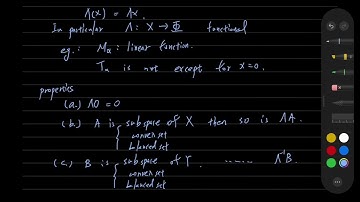 Λ(x) = Λx.
In particular Λ: X → Φ functional
eg.: Mα: linear function.
Tα is not except for α=0.
properties
(a.) Λ0 = 0
(b.) A is subspace of X then so is ΛA.
convex set
balanced set
(c.) B is subspace of Y. ...... Λ⁻¹B.
convex set
balanced set